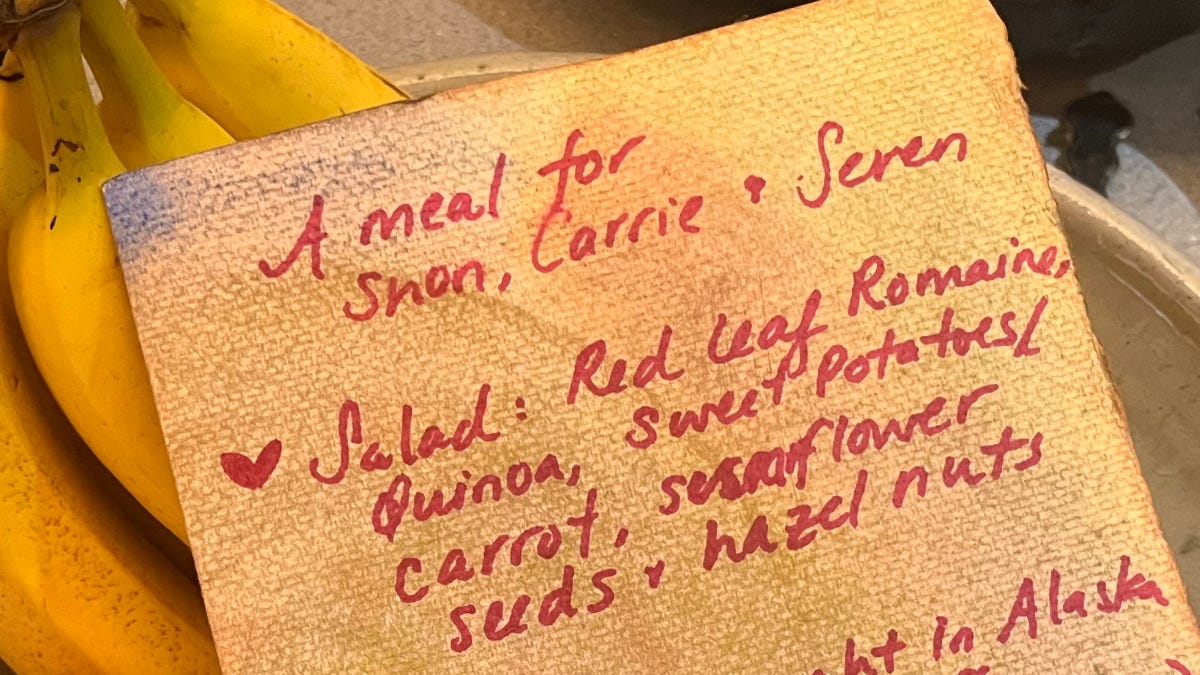 A meal for
Shon, Carrie + Seven
♥ Salad: Red Leaf Romaine,
Quinoa, sweet potatoes/
carrot, sunflower
seeds + hazel nuts
ht in Alaska